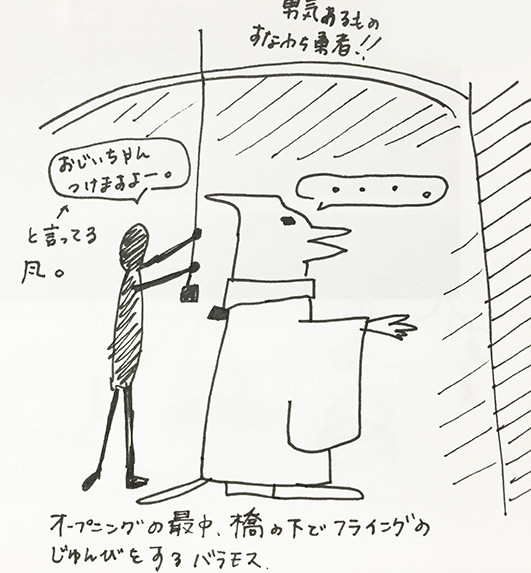 男気あるもの
すなわち勇者!!
おじいちゃん
つけますよー。
と言ってる
風。
・・・・。
オープニングの最中、橋の下でフライングの
じゅんびをするバラモス.